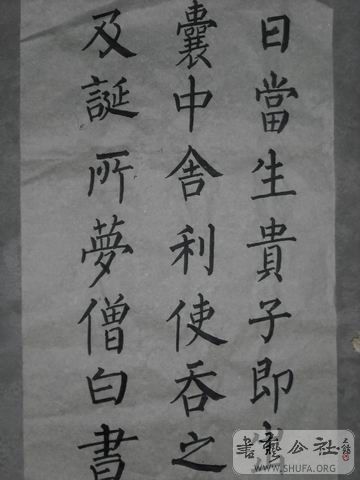 曰當生貴子即出
囊中舍利使吞之
及誕所夢僧白晝
書藝公社
WWW.SHUFA.ORG